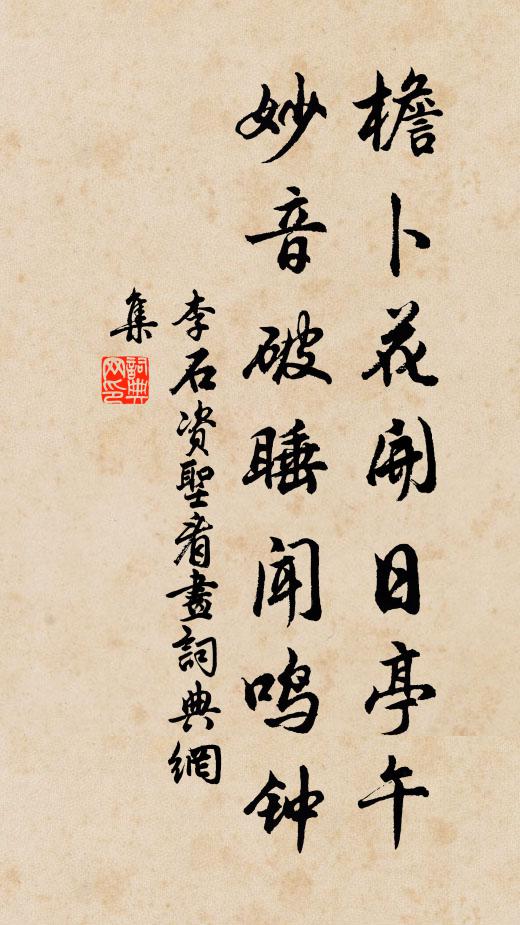 檐卜花開日亭午
妙音破睡聞鳴钟
李石资聖看畫詞典網
集
詞典网印